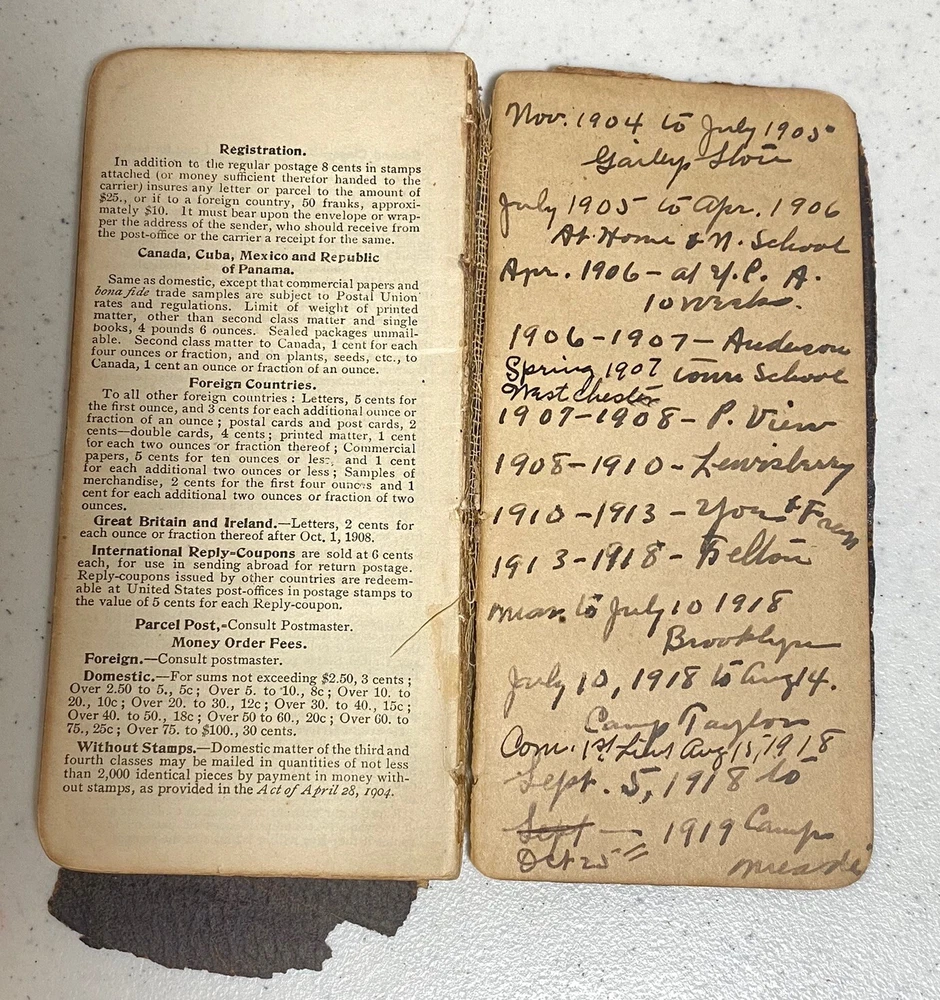 Registration.
In addition to the regular postage 8 cents in stamps
attached (or money sufficient therefor handed to the
carrier) insures any letter or parcel to the amount of
$25., or if to a foreign country, 50 franks, approxi-
mately $10. It must bear upon the envelope or wrap-
per the address of the sender, who should receive from
the post-office or the carrier a receipt for the same.
Canada, Cuba, Mexico and Republic
of Panama.
Same as domestic, except that commercial papers and
bona fide trade samples are subject to Postal Union
rates and regulations. Limit of weight of printed
matter, other than second class matter and single
books, 4 pounds 6 ounces. Sealed packages unmail-
able. Second class matter to Canada, 1 cent for each
four ounces or fraction, and on plants, seeds, etc., to
Canada, 1 cent an ounce or fraction of an ounce.
Foreign Countries.
To all other foreign countries: Letters, 5 cents for
the first ounce, and 3 cents for each additional ounce or
fraction of an ounce; postal cards and post cards, 2
cents—double cards, 4 cents; printed matter, 1 cent
for each two ounces or fraction thereof; Commercial
papers, 5 cents for ten ounces or less, and 1 cent
for each additional two ounces or less; Samples of
merchandise, 2 cents for the first four ounces and 1
cent for each additional two ounces or fraction of two
ounces.
Great Britain and Ireland.—Letters, 2 cents for
each ounce or fraction thereof after Oct. 1, 1908.
International Reply=Coupons are sold at 6 cents
each, for use in sending abroad for return postage.
Reply-coupons issued by other countries are redeem-
able at United States post-offices in postage stamps to
the value of 5 cents for each Reply-coupon.
Parcel Post,=Consult Postmaster.
Money Order Fees.
Foreign.—Consult postmaster.
Domestic.—For sums not exceeding $2.50, 3 cents;
Over 2.50 to 5., 5c; Over 5. to 10., 8c; Over 10. to
20., 10c; Over 20. to 30., 12c; Over 30. to 40., 15c;
Over 40. to 50., 18c; Over 50 to 60., 20c; Over 60. to
75., 25c; Over 75. to $100., 30 cents.
Without Stamps.—Domestic matter of the third and
fourth classes may be mailed in quantities of not less
than 2,000 identical pieces by payment in money with-
out stamps, as provided in the Act of April 28, 1904.
Nov. 1904 to July 1905
July 1905 to Apr. 1906
At Home & N. School
Apr. 1906 – at Y.P. A.
10 weeks.
1906–1907 – Anderson
Spring 1907 town School
West Chester
1907–1908 – P. View
1908–1910 – Lewisberry
1910–1913 – York & Fram
1913–1918 – Felton
Mar. to July 10 1918
Brooklyn
July 10, 1918 to Aug 14.
Camp Taylor
Com. 1st Lieut Aug 15, 1918
Sept. 5, 1918 to
Sept — 1919 Camp
Oct 25 "